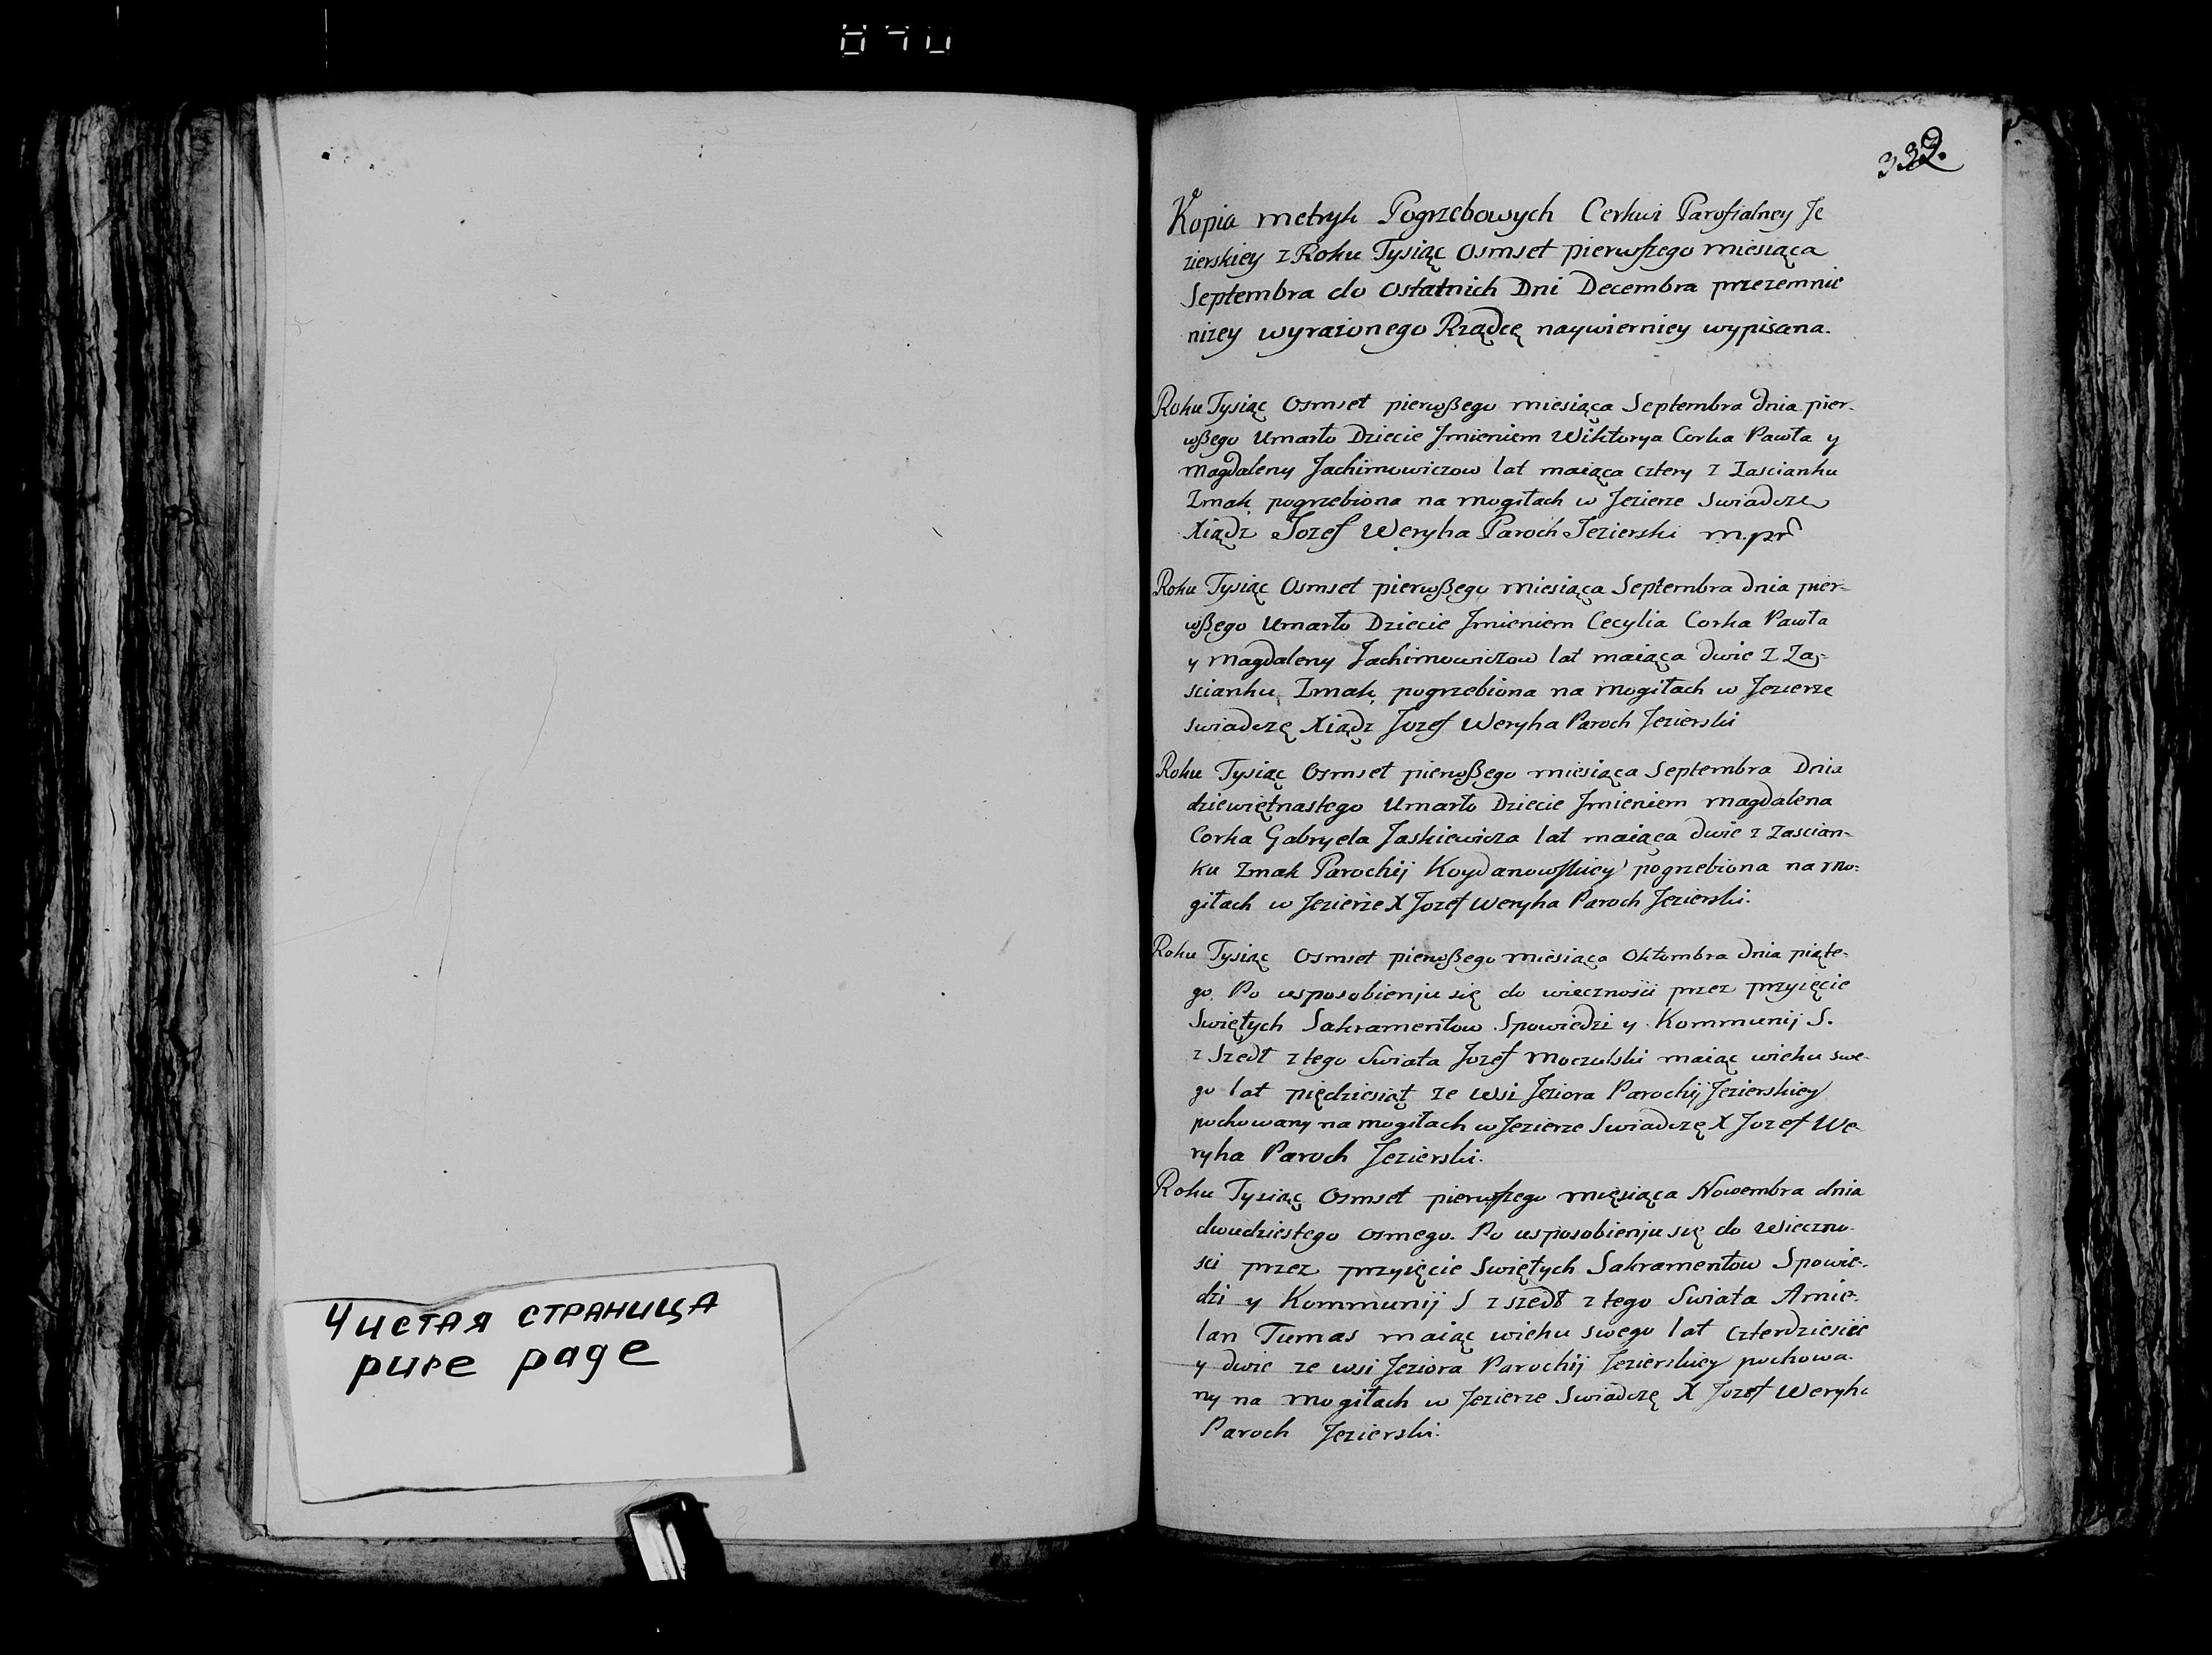 Чистая страница
pure page
332.
Kopia metryk Pogrzebowych Cerkwi Parofialney Je
zierskiey z Roku Tysiąc Osmset pierwszego miesiąca
Septembra do Ostatnich Dni Decembra przezemnie
niżey wyrażonego Rządcę naywierniey wypisana.
Roku Tysiąc Osmset pierwßego miesiąca Septembra dnia pier-
wßego Umarło Dziecie Jmieniem Wiktorya Corka Pawła y
Magdaleny Jachimowiczow lat maiąca cztery z Zascianku
Zmak pogrzebiona na mogiłach w Jezierze Swiadcze
Xiądz Jozef Weryha Paroch Jezierski m.pr
Roku Tysiąc Osmset pierwßego miesiąca Septembra dnia pier-
wßego Umarło Dziecie Jmieniem Cecylia Corka Pawła
y Magdaleny Jachimowiczow lat maiąca dwie z Za-
scianku Zmak pogrzebiona na mogiłach w Jezierze
swiadczę Xiądz Jozef Weryha Paroch Jezierski
Roku Tysiąc Osmset pierwßego miesiąca Septembra Dnia
dziewiętnastego Umarło Dziecie Jmieniem Magdalena
Corka Gabryela Jaskiewicza lat maiąca dwie z Zascian-
ku Zmak Parochij Koydanowskiey pogrzebiona na mo-
giłach w Jezierze X Jozef Weryha Paroch Jezierski.
Roku Tysiąc Osmset pierwßego miesiąca Oktombra dnia piąte-
go. Po usposobieniju się do wieczności przez przyięcie
Swiętych Sakramentow Spowiedzi y Kommunij S.
z Szedł z tego Swiata Jozef Moczulski maiąc wieku swe-
go lat pięдziesiąt ze Wsi Jeziora Parochij Jezierskiey
pochowany na mogiłach w Jezierze Swiadczę X Jozef We
ryha Paroch Jezierski.
Roku Tysiąc Osmset pierwszego mięsiąca Nowembra dnia
dwudziestego osmego. Po usposobieniju się do Wieczno-
sci przez przyięcie Swiętych Sakramentow Spowie-
dzi y Kommunij S z szedł z tego Swiata Amie-
lan Tumas maiąc wieku swego lat czterdziesiec
y dwie ze wsi Jeziora Parochij Jezierskiey pochowa-
ny na mogiłach w Jezierze Swiadczę X Jozef Weryha
Paroch Jezierski.